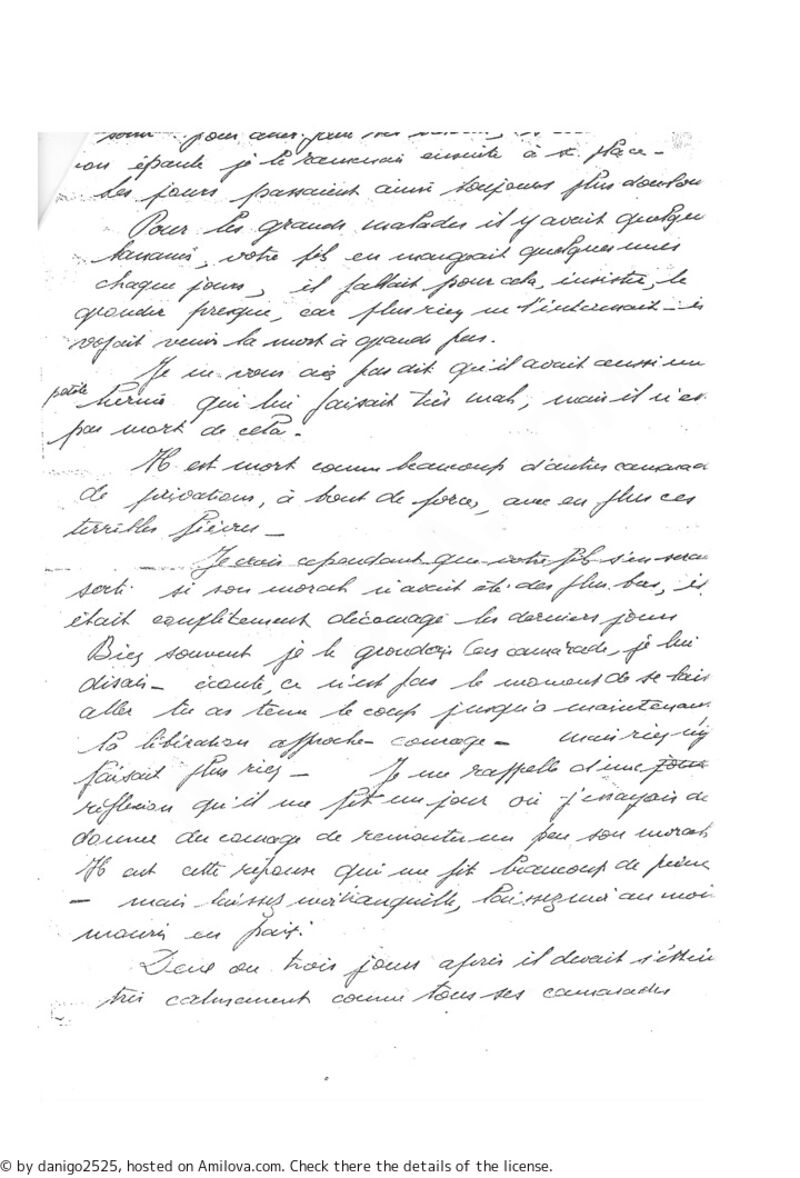 mon épaule je le ramenais ensuite à sa place -
Les jours passaient ainsi toujours plus doulou
Pour les grands malades il y avait quelques
bananes, votre fils en mangeait quelques unes
chaque jours, il fallait pour cela, insister, le
gronder presque, car plus rien ne l'intéressait - il
voyait venir la mort à grands pas.
Je ne vous ais pas dit qu'il avait aussi un
petite hernie qui lui faisait très mal, mais il n'es
pas mort de cela -
Il est mort comme beaucoup d'autres camarad
de privations, à bout de forces, avec en plus ces
terribles fièvres -
Je crois cependant que votre fils s'en sera
sorti si son moral n'avait été des plus bas, il
était complètement découragé les derniers jours
Bien souvent je le grondais en camarade, je lui
disais - écoute, ce n'est pas le moment de se lais
aller tu as tenu le coup jusqu'à maintenant
la libération approche - courage - mais rien n'y
faisait plus rien - Je me rappelle d'une jour
réflexion qu'il me fit un jour où j'essayais de
donner du courage de remonter un peu son moral
Il eut cette réponse qui me fit beaucoup de peine
- mais laissez moi tranquille, laissez moi au moi
mourir en paix.
Deux ou trois jours après il devait s'étein
très calmement comme tous ses camarades
© by danigo2525, hosted on Amilova.com. Check there the details of the license.